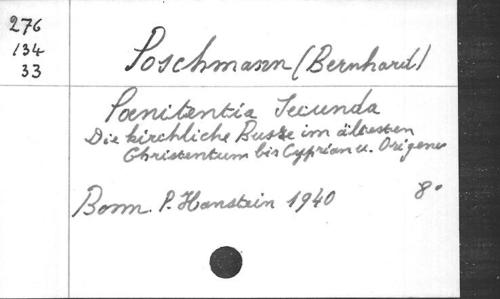 276
134
33
Poschmann (Bernhard)
Pœnitentia Secunda
Die kirchliche Busse im ältesten
Christentum bis Cyprian u. Origenes
Bonn. P. Hanstein 1940 8°